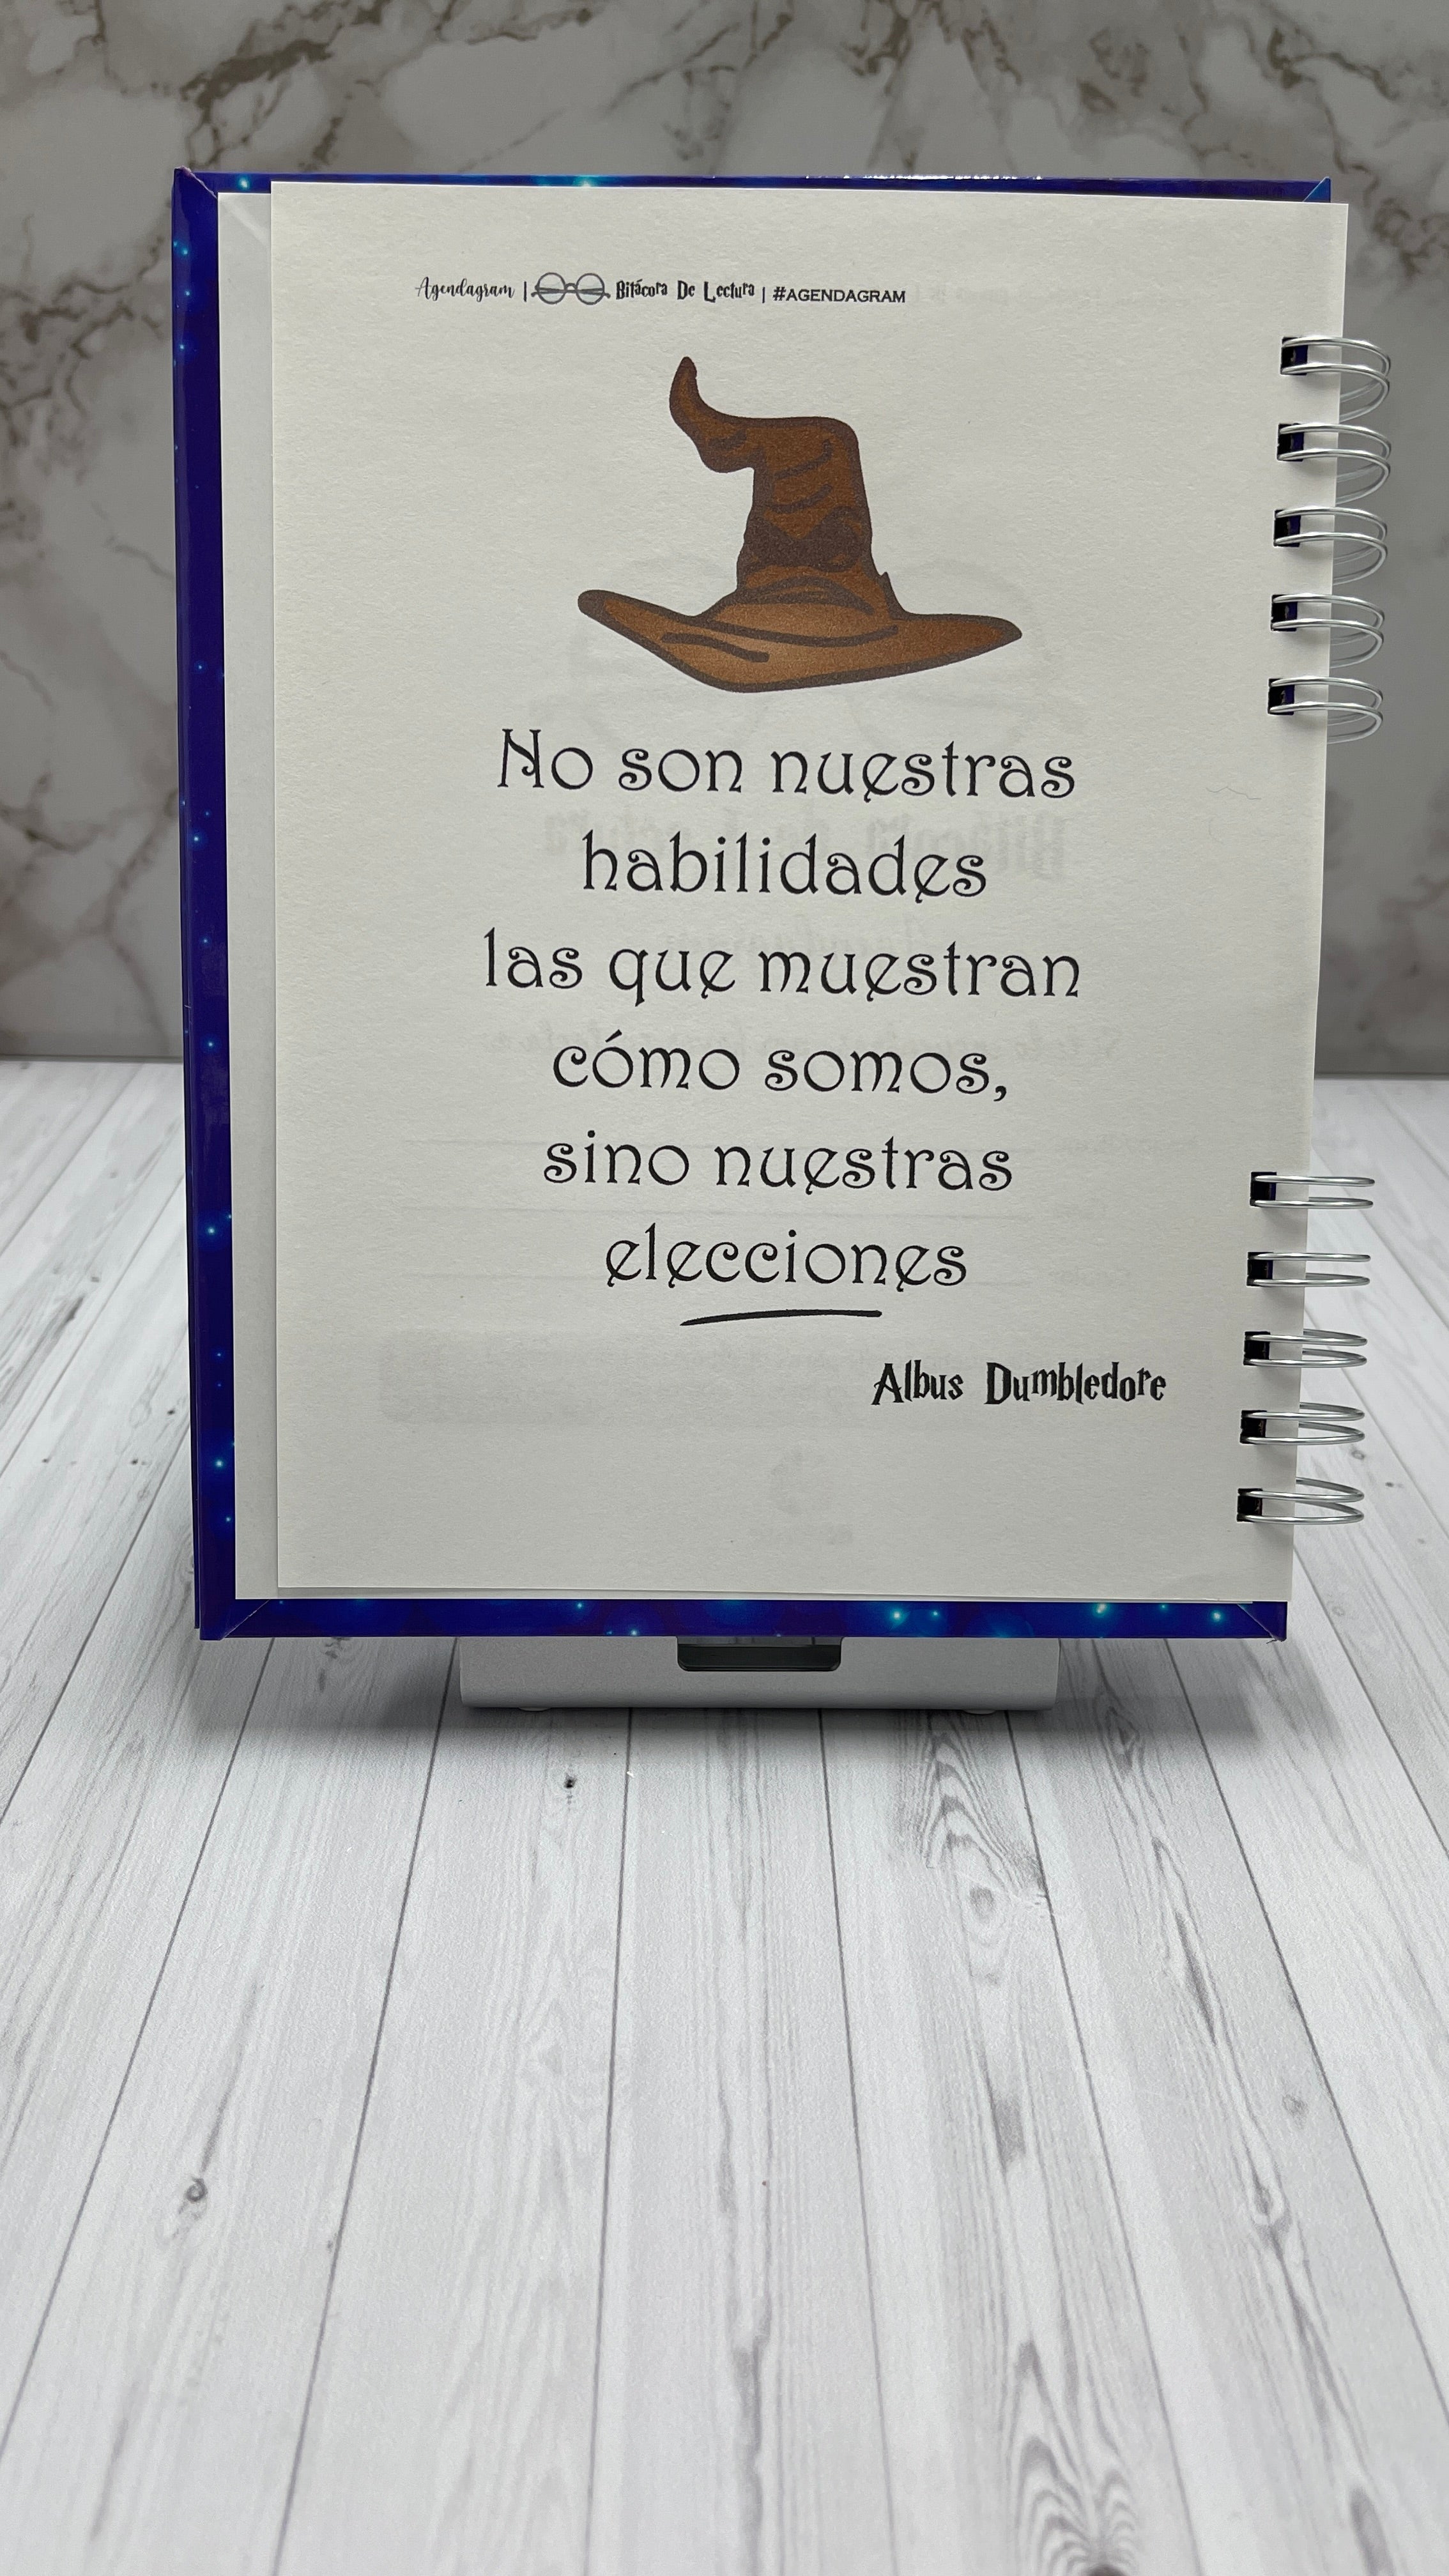 Agendagram | Bitácora De Lectura | #AGENDAGRAM
No son nuestras
habilidades
las que muestran
cómo somos,
sino nuestras
elecciones
Albus Dumbledore